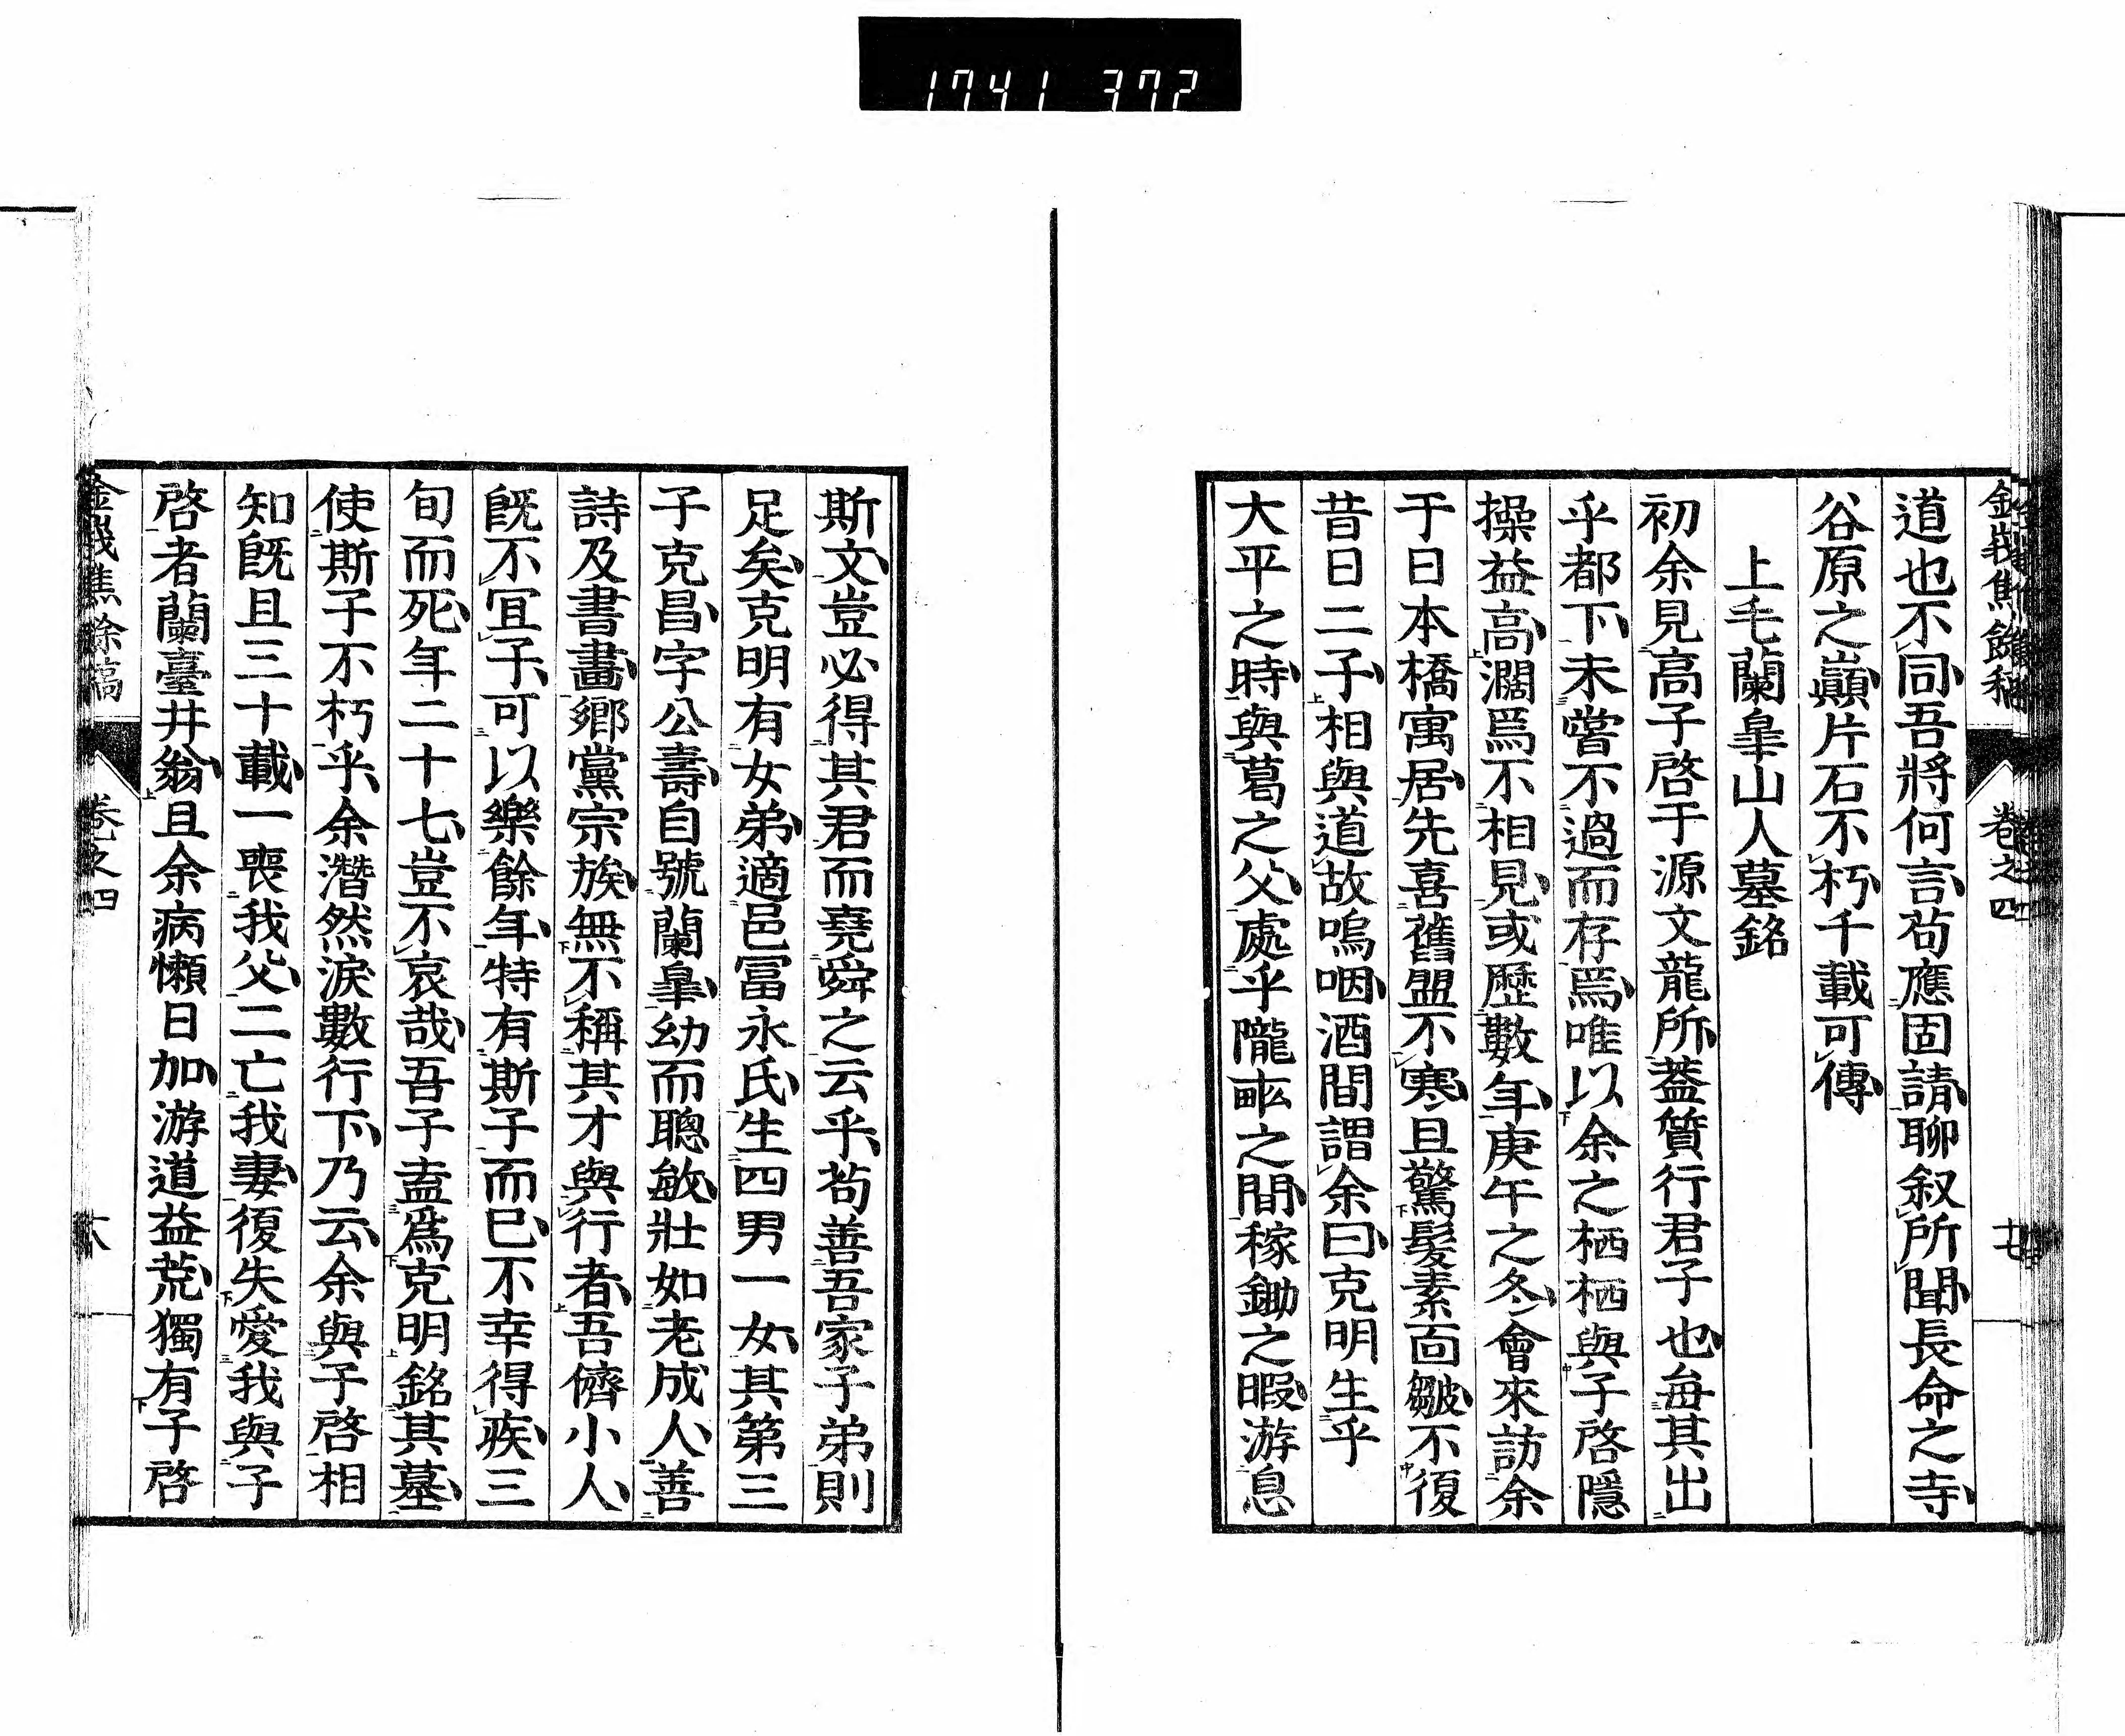 1741 372
金峩焦餘稿 卷之四 十七
道也不同吾將何言苟應固請聊叙所聞長命之寺
谷原之巔片石不朽千載可傳
上毛蘭皐山人墓銘
初余見高子啓于源文龍所葢質行君子也每其出
乎都下未嘗不過而存焉唯以余之栖栖與子啓隱
操益高濶焉不相見或歷數年庚午之冬會來訪余
于日本橋寓居先喜舊盟不寒且驚髮素面皺不復
昔日二子相與道故嗚咽酒間謂余曰克明生乎
大平之時與葛之父處乎隴畝之間稼鋤之暇游息
斯文豈必得其君而堯舜之云乎苟善吾家子弟則
足矣克明有女弟適邑冨永氏生四男一女其第三
子克昌字公壽自號蘭皐幼而聰敏壯如老成人善
詩及書畫鄉黨宗族無不稱其才與行者吾儕小人
旣不冝子可以樂餘年特有斯子而已不幸得疾三
旬而死年二十七豈不哀哉吾子盍爲克明銘其墓
使斯子不朽乎余潛然淚數行下乃云余與子啓相
知旣且三十載一喪我父二亡我妻復失愛我與子
啓者蘭臺井翁且余病懶日加游道益荒獨有子啓
金峩焦餘稿 卷之四